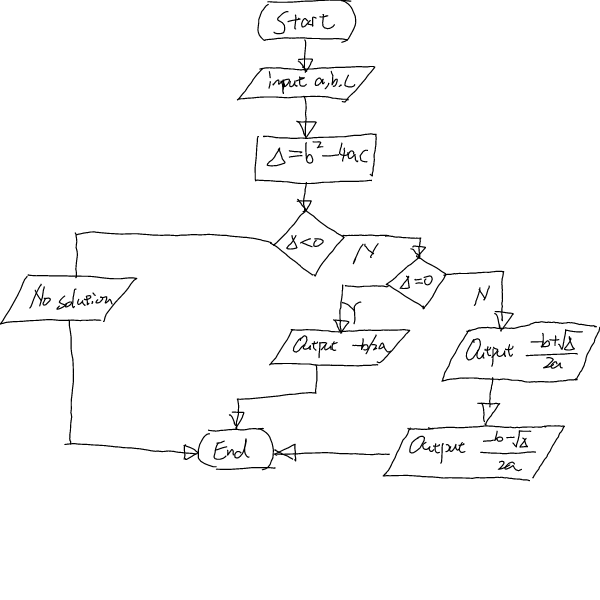 Start
input a,b,c
Δ=b²-4ac
Δ<0
N
Δ=0
N
Y
No solution
Output -b/2a
Output -b+√Δ/2a
Output -b-√Δ/2a
End